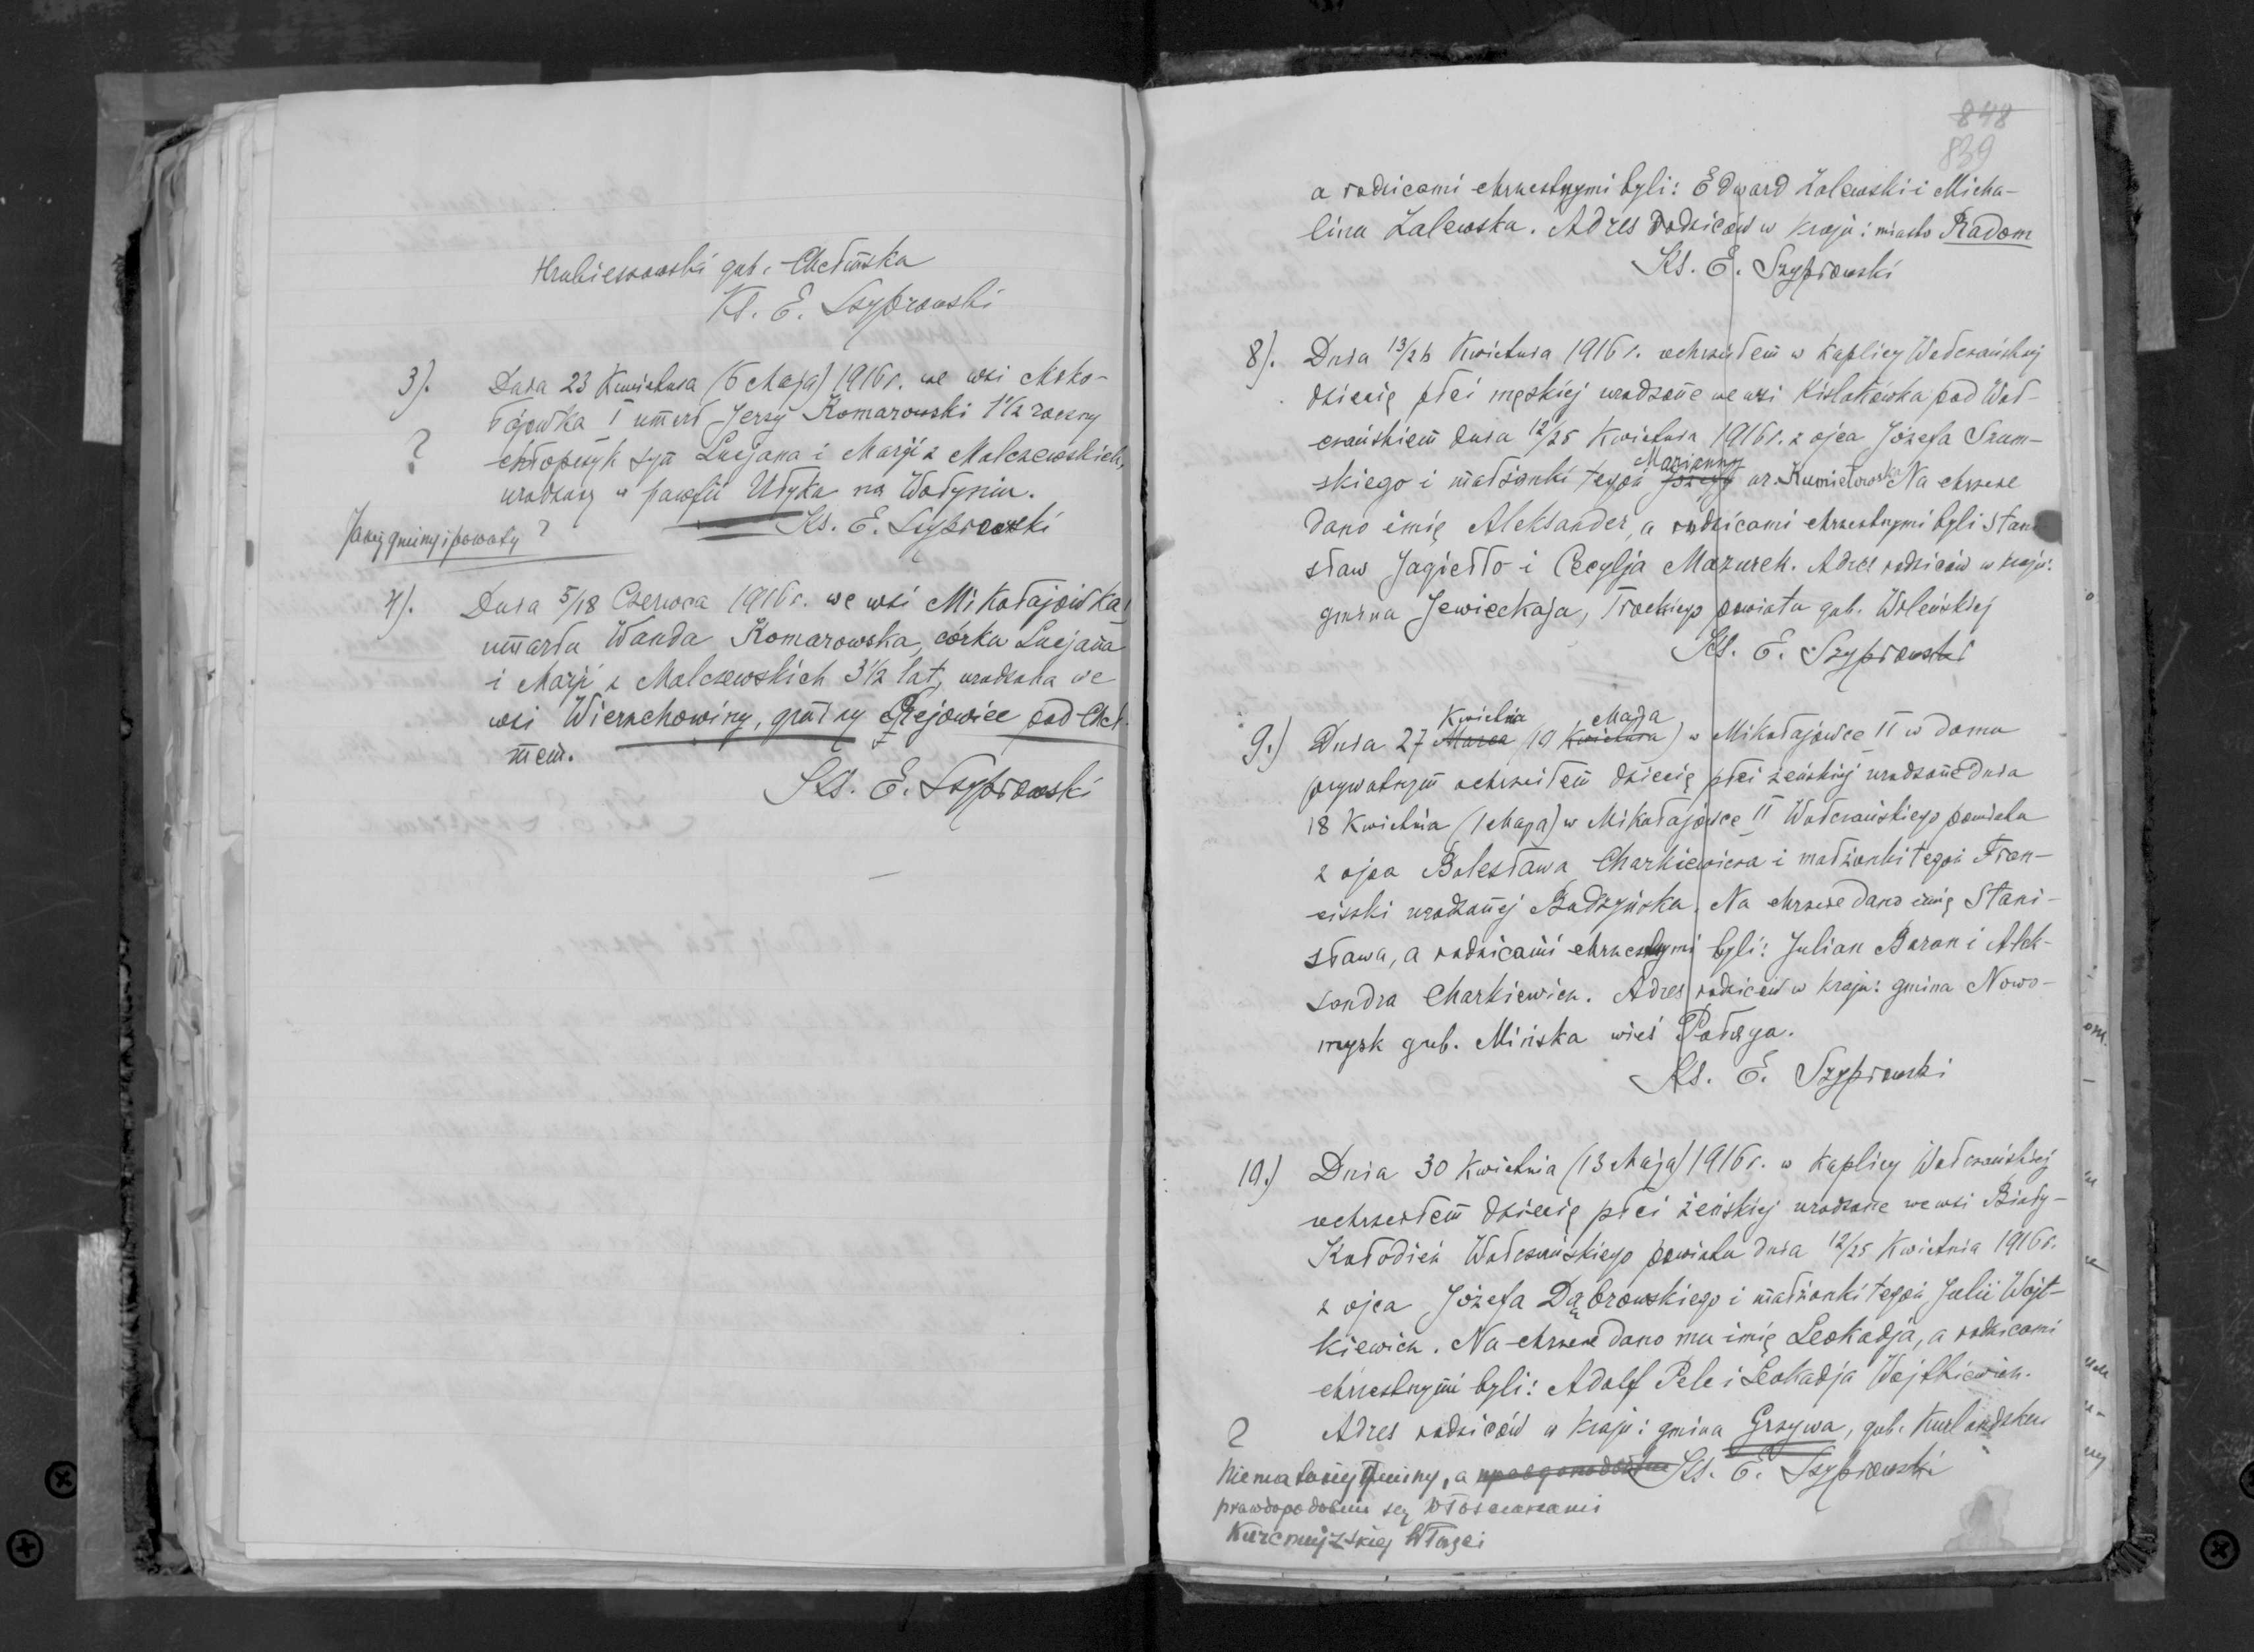 Hrubieszowski gub. Chełmska
Ks. E. Szyprowski
3). Dnia 23 Kwietnia (6 Maja) 1916 r. we wsi Miko-
łajowka I umarł Jerzy Komarowski 1 1/2 roczny
? chłopczyk syn Lucjana i Marji z Malczewskich,
urodzony w parafii Udyka na Wołyniu.
Ks. E. Szyprowski
Jakiej gminy i powiatu?
4). Dnia 5/18 Czerwca 1916 r. we wsi Mikołajówka I
umarła Wanda Komarowska, córka Lucjana
i Marji z Malczewskich 3 1/2 lat, urodzona we
wsi Wierzchowiny, gminy Rejowiec pod Cheł-
mem.
Ks. E. Szyprowski
848
839
a rodzicami chrzestnymi byli: Edward Zalewski i Micha-
lina Zalewska. Adres rodziców w kraju: miasto Radom
Ks. E. Szyprowski
8). Dnia 13/26 Kwietnia 1916 r. ochrzciłem w kaplicy Wołczańskiej
dziecię płci męskiej urodzone we wsi Kisłotówka pod Woł-
czańskiem dnia 12/25 Kwietnia 1916 r. z ojca Józefa Szum-
Marianny
skiego i małżonki tegoż Józefy ur. Kumiełowska Na chrzcie
dano imię Aleksander, a rodzicami chrzestnymi byli Stani
sław Jagiełło i Cecylja Mazurek. Adres rodziców w kraju:
gmina Jewieckaja, Trockiego powiatu gub. Wileńskiej
Ks. E. Szyprowski
Kwietnia Maja
9.) Dnia 27 Marca (10 Kwietnia) w Mikołajówce II w domu
prywatnym ochrzciłem dziecię płci żeńskiej urodzone dnia
18 Kwietnia (1 Maja) w Mikołajówce II Wołczańskiego powiatu
z ojca Bolesława Charkiewicza i małżonki tegoż Fran-
ciszki urodzonej Budzyńska. Na chrzcie dano imię Stani-
sława, a rodzicami chrzestnymi byli: Julian Baran i Alek-
sandra Charkiewicz. Adres rodziców w kraju: gmina Nowo-
mysk gub. Mińska wieś Połęga.
Ks. E. Szyprowski
10.) Dnia 30 Kwietnia (13 Maja) 1916 r. w kaplicy Wołczańskiej
ochrzciłem dziecię płci żeńskiej urodzone we wsi Biały-
Kołodież Wołczańskiego powiatu dnia 12/25 Kwietnia 1916 r.
z ojca Józefa Dąbrowskiego i małżonki tegoż Julii Wojt-
kiewicz. Na chrzcie dano mu imię Leokadja, a rodzicami
chrzestnymi byli: Adolf Pele i Leokadja Wojtkiewicz.
? Adres rodziców w kraju: gmina Grzywa, gub. Kurlandzka
Ks. E. Szyprowski
Niema takiej gminy, a
prawdopodobnie są włościanami
Kurcmujżskiej Włości